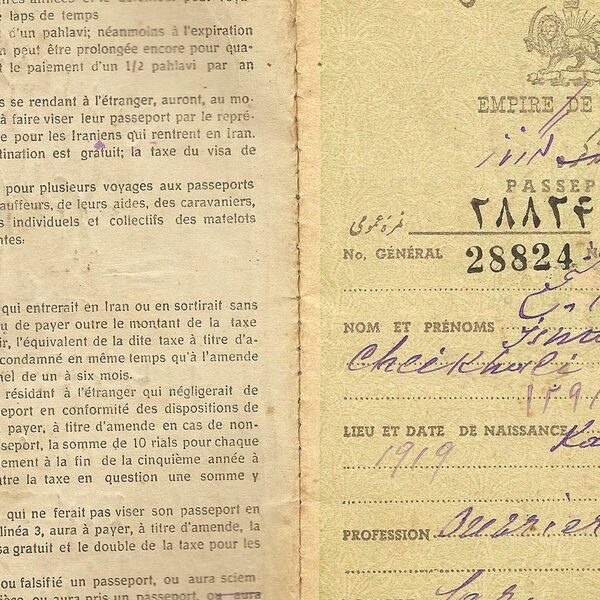 e laps de temps
d'un pahlavi; néanmoins à l'expiration
n peut être prolongée encore pour qua-
t le paiement d'un 1/2 pahlavi par an
s se rendant à l'étranger, auront, au mo-
à faire viser leur passeport par le repré-
e pour les Iraniens qui rentrent en Iran.
tination est gratuit; la taxe du visa de
pour plusieurs voyages aux passeports
auffeurs, de leurs aides, des caravaniers,
s individuels et collectifs des matelots
ntes:
qui entrerait en Iran ou en sortirait sans
u de payer outre le montant de la taxe
ir, l'équivalent de la dite taxe à titre d'a-
condamné en même temps qu'à l'amende
nel de un à six mois.
résidant à l'étranger qui négligerait de
eport en conformité des dispositions de
payer, à titre d'amende en cas de non-
sseport, la somme de 10 rials pour chaque
ement à la fin de la cinquième année à
ntre la taxe en question une somme y
qui ne ferait pas viser son passeport en
linéa 3, aura à payer, à titre d'amende, la
sa gratuit et le double de la taxe pour les
ou falsifié un passeport, ou aura sciem-
ou aura pris un passeport, ou aura
EMPIRE DE
PASSEP
نمره عمومی ۲۸۸۲۴
No, GÉNÉRAL 28824
NOM ET PRÉNOMS
Cheikhali
LIEU ET DATE DE NAISSANCE Ka
1919
PROFESSION Ouvrier